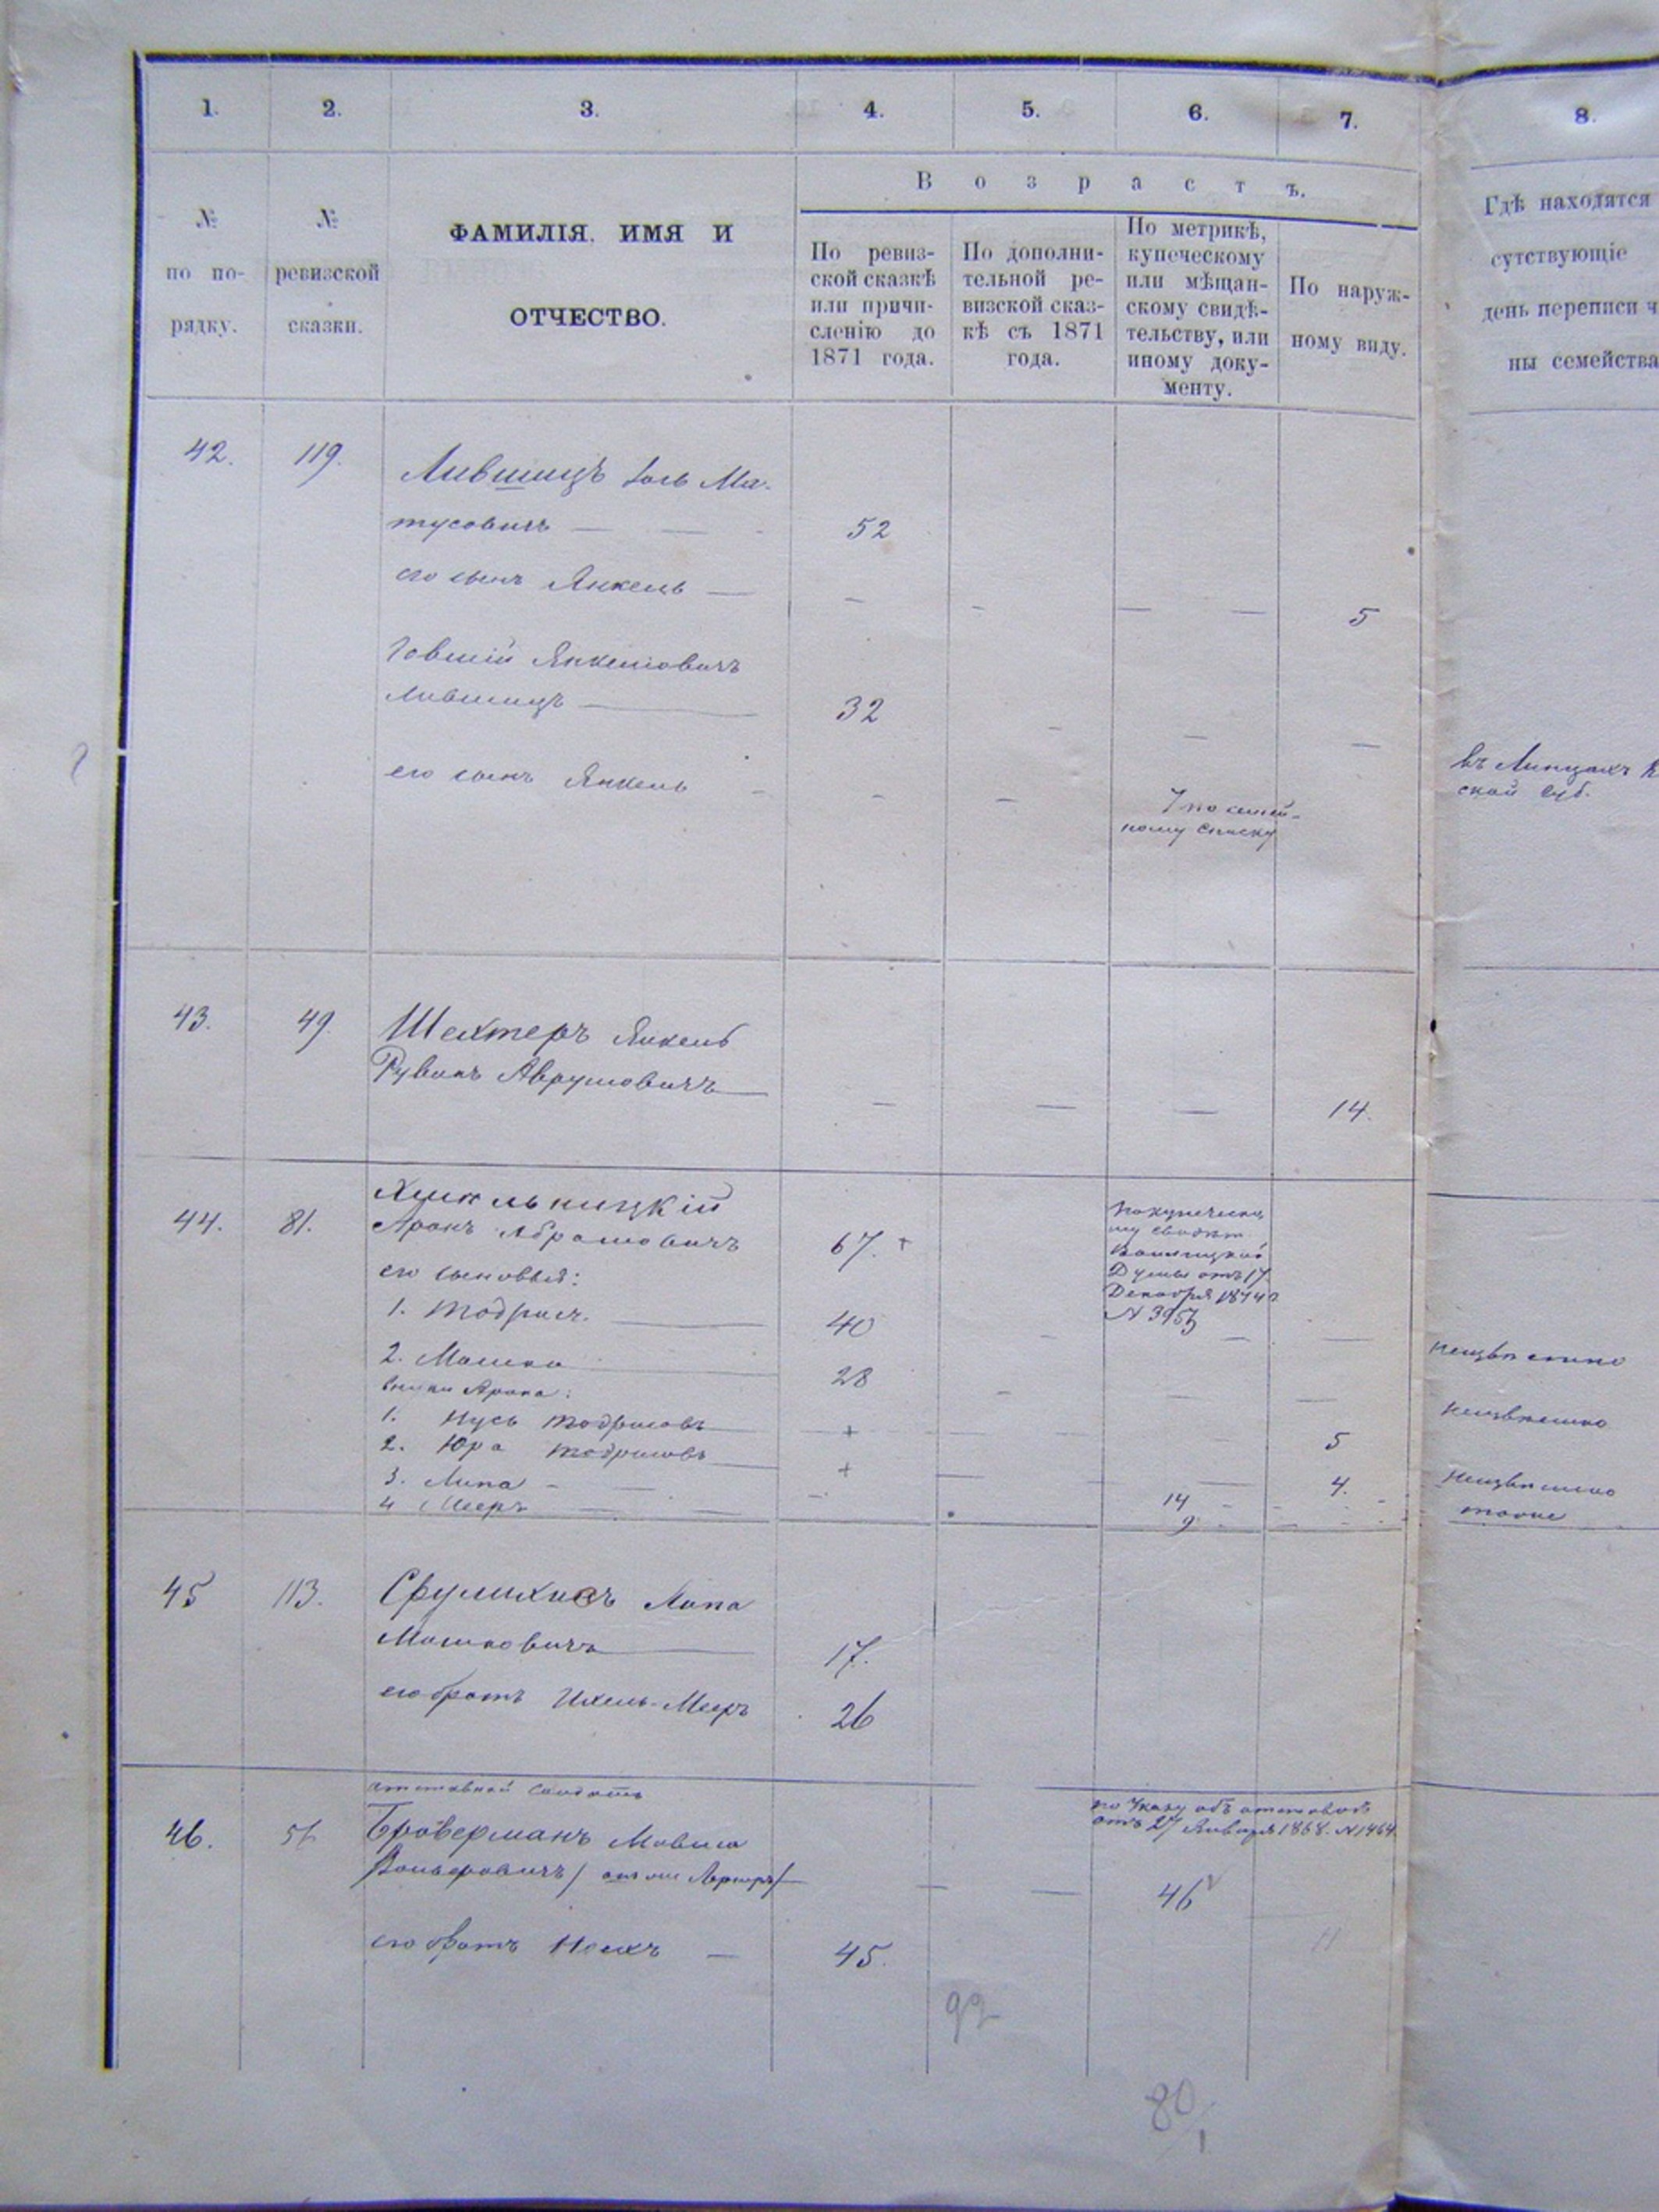 1. 2. 3. 4. 5. 6. 7. 8.
№ по по-рядку.
№ ревизской сказки.
ФАМИЛІЯ, ИМЯ И
ОТЧЕСТВО.
В о з р а с т ъ.
По ревиз-
ской сказкѣ
или причи-
сленію до
1871 года.
По дополни-
тельной ре-
визской сказ-
кѣ съ 1871
года.
По метрикѣ,
купеческому
или мѣщан-
скому свидѣ-
тельству, или
иному доку-
менту.
По наруж-
ному виду.
Гдѣ находятся
сутствующіе
день переписи ч
ны семейства
42. 119. Лившицъ Іось Ма-
тусовичъ — — 52
его сынъ Янкель — — - — — 5
Говшій Янкелювичъ
Лившицъ — 32 - — —
его сынъ Янкель - - —
7 по семей-
ному списку
въ Липцахъ
ской губ.
43. 49. Шехтеръ Янкель
Рувинъ Аврумовичъ — — — — 14.
44. 81. Хмельницкій
Аронъ Абрамовичъ 67. +
По купеческо
му свидѣт
Винницкой
Думы отъ 17
Декабря 1874 г
№ 3953
его сыновья:
1. Тодрисъ. — 40 - — — неизвѣстно
2. Мошко — 28 - — — неизвѣстно
внуки Арона:
1. Нусь Тодрисовъ — + — 5
2. Юра Тодрисовъ — + — — 4. неизвѣстно
3. Липа - — - 14 -
4 Мееръ — — 9 - тоже
45 113. Срулихисъ Липа
Мошковичъ — 17.
его братъ Ихель-Мееръ 26
отставной солдатъ
46. 56 Броверманъ Мовша
Вольфовичъ / он же Лернеръ / — — — 46
по Указу объ отставкѣ
отъ 27 Января 1868. № 1464.
его братъ Ноехъ — 45. 11
92
80/1